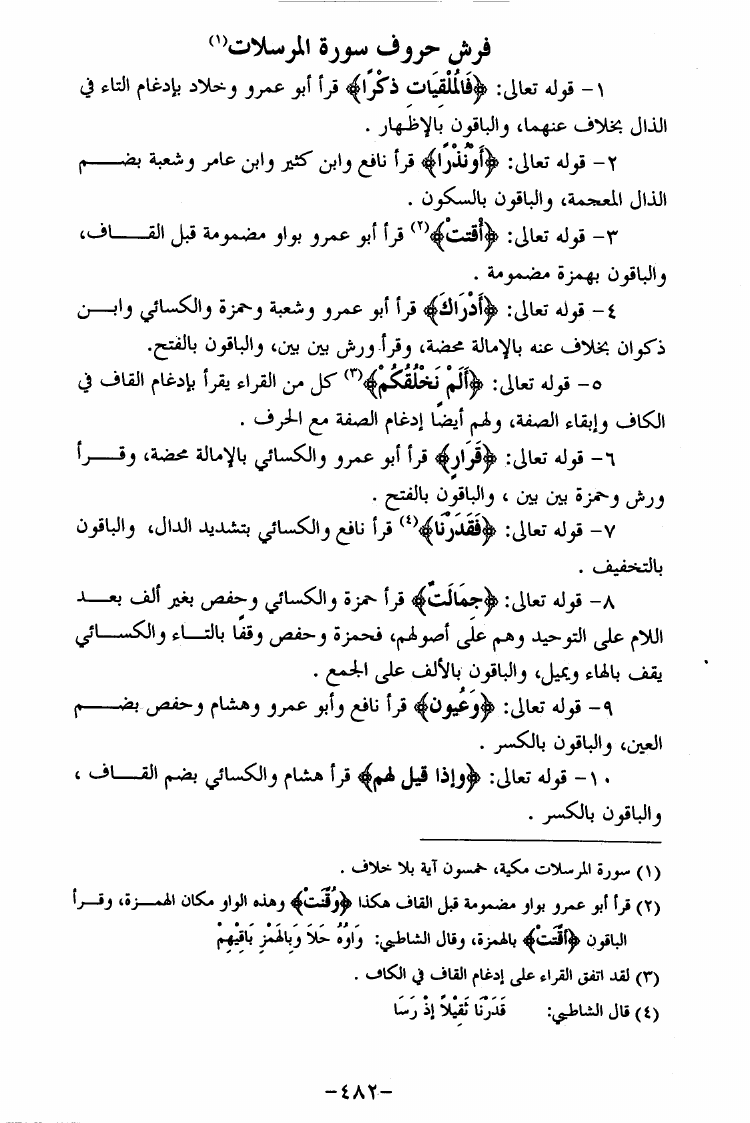 فرش حروف سورة المرسلات(١)
١- قوله تعالى: ﴿فَالْمُلْقِيَاتِ ذِكْرًا﴾ قرأ أبو عمرو وخلاد بإدغام التاء في
الذال بخلاف عنهما، والباقون بالإظهار .
٢- قوله تعالى: ﴿أَوْنُذْرًا﴾ قرأ نافع وابن كثير وابن عامر وشعبة بضـــم
الذال المعجمة، والباقون بالسكون .
٣- قوله تعالى: ﴿أُقتتْ﴾(٢) قرأ أبو عمرو بواو مضمومة قبل القـــاف،
والباقون بهمزة مضمومة .
٤- قوله تعالى: ﴿أَدْرَاكَ﴾ قرأ أبو عمرو وشعبة وحمزة والكسائي وابـــن
ذكوان بخلاف عنه بالإمالة محضة، وقرأ ورش بين بين، والباقون بالفتح.
٥- قوله تعالى: ﴿أَلَمْ نَخْلُقْكُمْ﴾(٣) كل من القراء يقرأ بإدغام القاف في
الكاف وإبقاء الصفة، ولهم أيضًا إدغام الصفة مع الحرف .
٦- قوله تعالى: ﴿قَرَارٍ﴾ قرأ أبو عمرو والكسائي بالإمالة محضة، وقـــرأ
ورش وحمزة بين بين ، والباقون بالفتح .
٧- قوله تعالى: ﴿فَقَدَرْنَا﴾(٤) قرأ نافع والكسائي بتشديد الدال، والباقون
بالتخفيف .
٨- قوله تعالى: ﴿جِمَالَتٌ﴾ قرأ حمزة والكسائي وحفص بغير ألف بعـــد
اللام على التوحيد وهم على أصولهم، فحمزة وحفص وقفًا بالتـــاء والكســـائي
يقف بالهاء ويميل، والباقون بالألف على الجمع .
٩- قوله تعالى: ﴿وَعُيون﴾ قرأ نافع وأبو عمرو وهشام وحفص بضـــم
العين، والباقون بالكسر .
١٠- قوله تعالى: ﴿وإذا قيل لهم﴾ قرأ هشام والكسائي بضم القـــاف ،
والباقون بالكسر .
(١) سورة المرسلات مكية، خمسون آية بلا خلاف .
(٢) قرأ أبو عمرو بواو مضمومة قبل القاف هكذا ﴿وُقِّتَتْ﴾ وهذه الواو مكان الهمـــزة، وقـــرأ
الباقون ﴿أُقِّتَتْ﴾ بالهمزة، وقال الشاطبي: وَاوُهُ حَلاَ وَبِالهَمْزِ بَاقِيهِمْ
(٣) لقد اتفق القراء على إدغام القاف في الكاف .
(٤) قال الشاطبي: قَدَرْنَا ثَقِيْلاً إِذْ رَسَا
-٤٨٢-